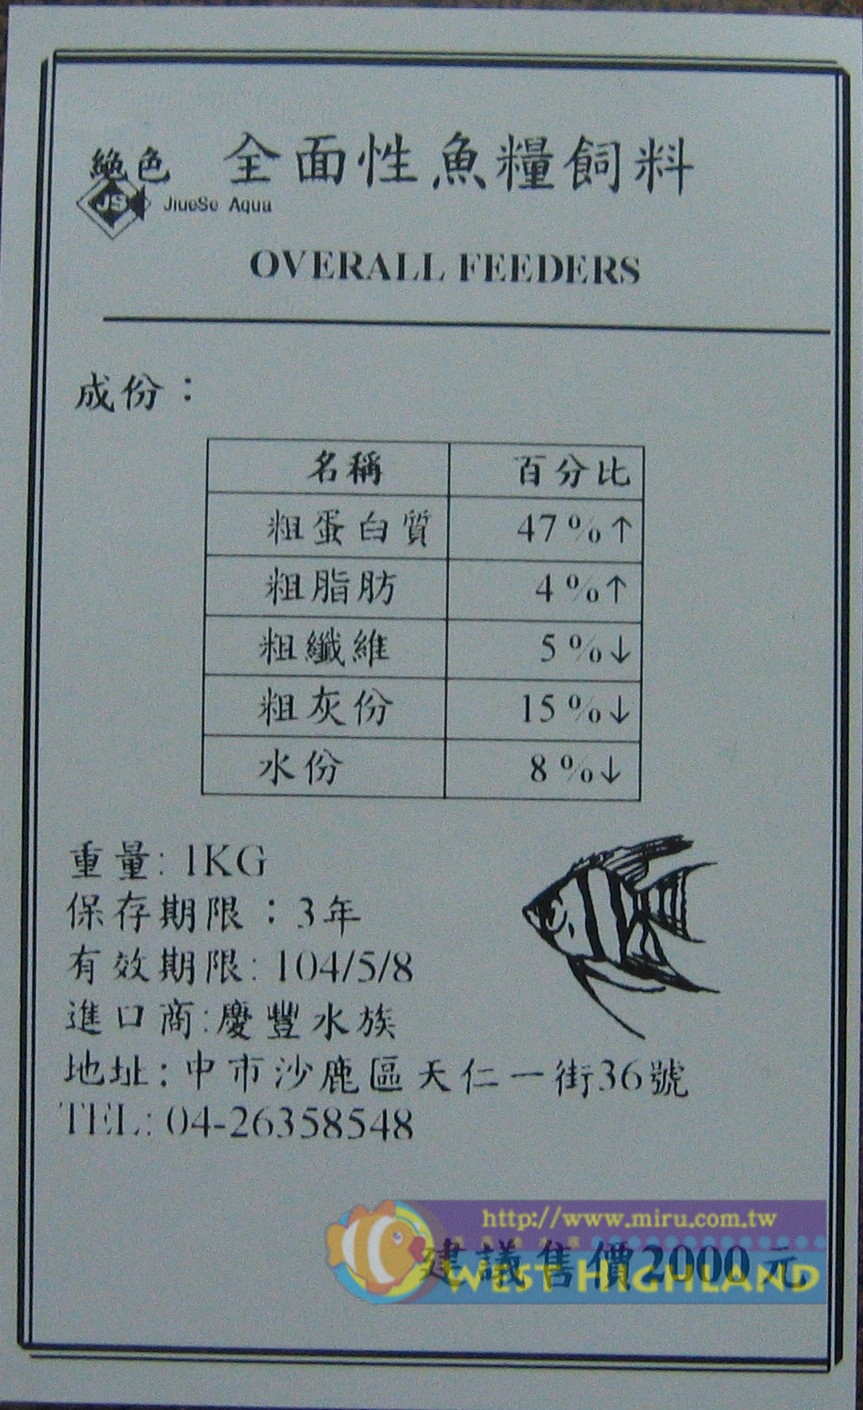 絶色 全面性魚糧飼料
JS JiueSe Aqua
OVERALL FEEDERS
成份：
名稱 百分比
粗蛋白質 47%↑
粗脂肪 4%↑
粗纖維 5%↓
粗灰份 15%↓
水份 8%↓
重量: 1KG
保存期限：3年
有效期限: 104/5/8
進口商:慶豐水族
地址: 中市沙鹿區天仁一街36號
TEL: 04-26358548
http://www.miru.com.tw
建議售價2000元
WEST HIGHLAND